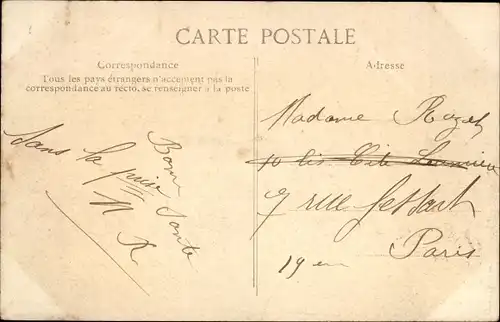 CARTE POSTALE
Correspondance
Tous les pays étrangers n'acceptent pas la
correspondance au recto, se renseigner à la poste
Adresse
Bonne Santé
dans la
N R
Madame
10 bis Cité
7 rue
Paris
19 em